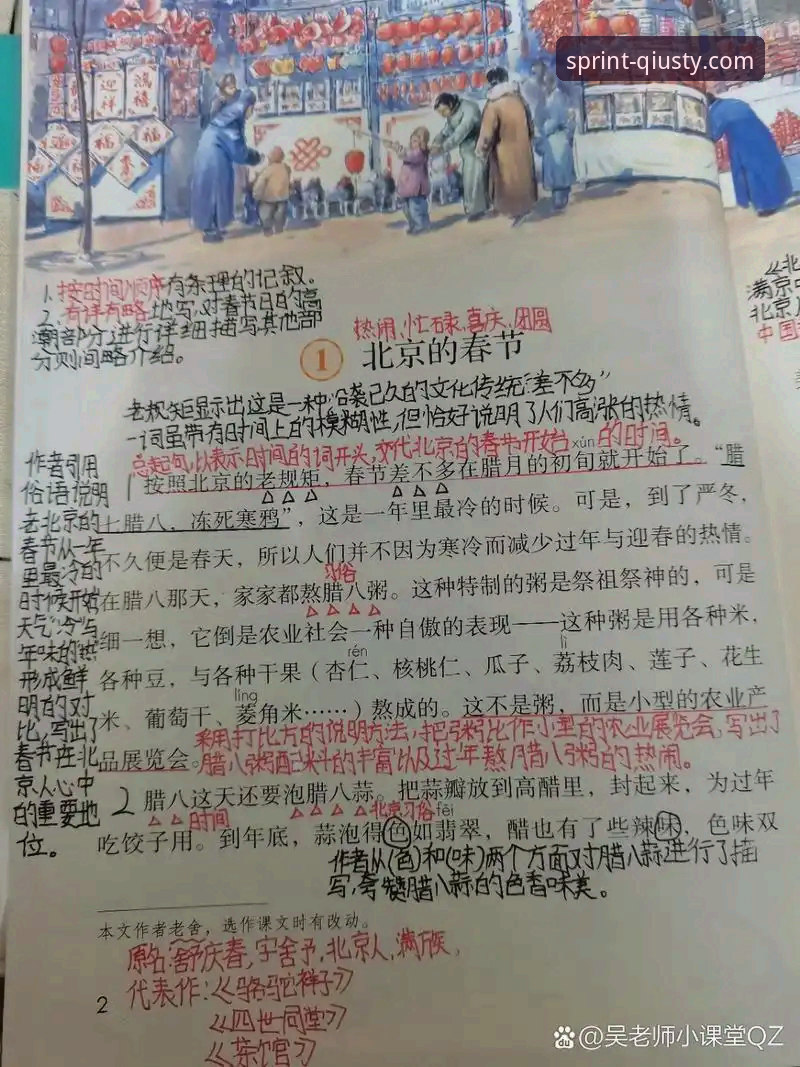 sprint-qiusty.com
迎祥
鴻禧
福
福
1. 按时间顺序有条理的记叙。
2. 有详有略地写,对春节日的高
潮部分进行详细描写,其他部
分则简略介绍。
热闹、忙碌、喜庆、团圆
1 北京的春节
老规矩显示出这是一种沿袭已久的文化传统“差不多”
一词虽带有时间上的模糊性,但恰好说明了人们高涨的热情。
总起句,以表示时间的词开头,交代北京的春节开始的时间。
xún
按照北京的老规矩,春节差不多在腊月的初旬就开始了。“腊
七腊八,冻死寒鸦”,这是一年里最冷的时候。可是,到了严冬,
不久便是春天,所以人们并不因为寒冷而减少过年与迎春的热情。
习俗
在腊八那天,家家都熬腊八粥。这种特制的粥是祭祖祭神的,可是
细一想,它倒是农业社会一种自傲的表现——这种粥是用各种米,
rén lì
各种豆,与各种干果(杏仁、核桃仁、瓜子、荔枝肉、莲子、花生
líng
米、葡萄干、菱角米……)熬成的。这不是粥,而是小型的农业产
品展览会。
采用打比方的说明方法,把粥比作小型的农业展览会,写出了
腊八粥配料的丰富以及过年熬腊八粥的热闹。
作者引用
俗语说明
老北京的
春节从一年
里最冷的
时候开始
天气“冷”与
年味的“热”
形成鲜
明的对
比,写出了
春节在北
京人心中
的重要地
位。
2 腊八这天还要泡腊八蒜。把蒜瓣放到高醋里,封起来,为过年
时间
北京习俗
fěi
吃饺子用。到年底,蒜泡得色如翡翠,醋也有了些辣味,色味双
作者从(色)和(味)两个方面对腊八蒜进行了描
写,夸赞腊八蒜的色香味美。
本文作者老舍,选作课文时有改动。
原名:舒庆春,字舍予,北京人,满族,
代表作:《骆驼祥子》
《四世同堂》
《茶馆》
2
《北
满京中
北京人
中国
@吴老师小课堂QZ